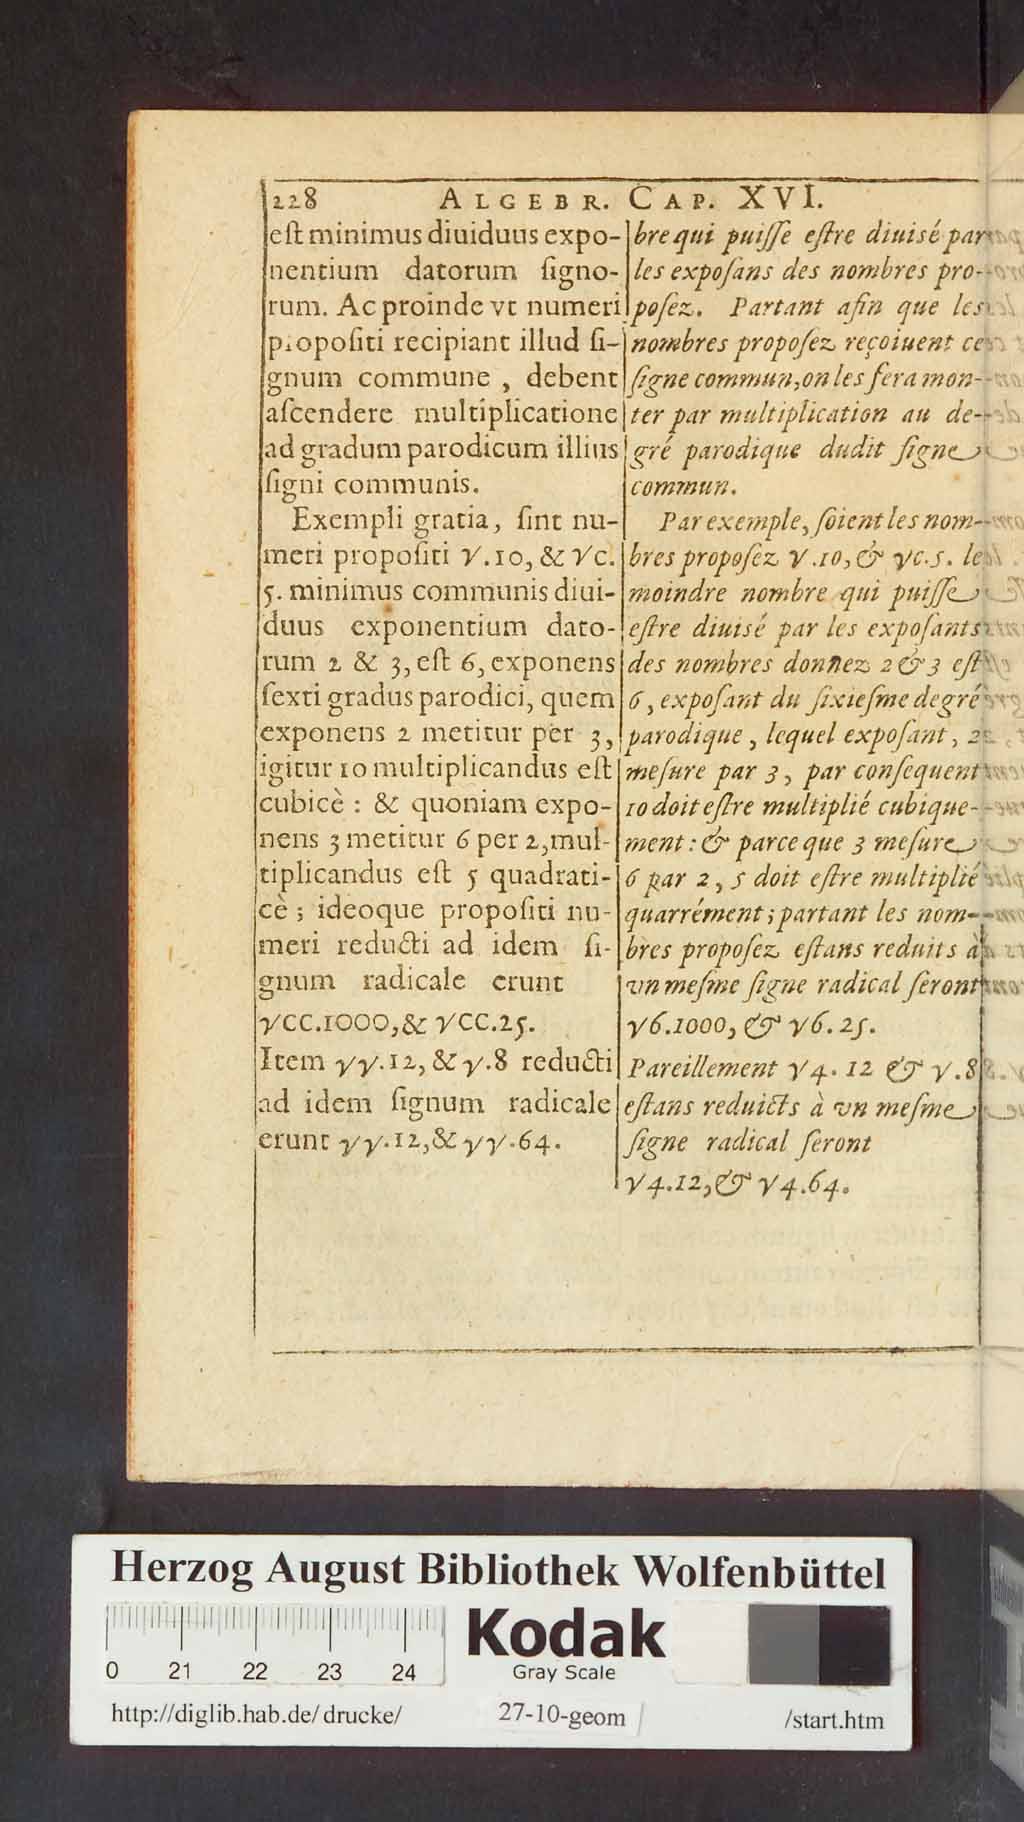 228 ALGEBR. CAP. XVI.
eſt minimus diuiduus expo-
nentium datorum ſigno-
rum. Ac proinde vt numeri
propoſiti recipiant illud ſi-
gnum commune , debent
aſcendere multiplicatione
ad gradum parodicum illius
ſigni communis.
Exempli gratia, ſint nu-
meri propoſiti √.10, & √C.
5. minimus communis diui-
duus exponentium dato-
rum 2 & 3, eſt 6, exponens
ſexti gradus parodici, quem
exponens 2 metitur per 3,
igitur 10 multiplicandus eſt
cubicè : & quoniam expo-
nens 3 metitur 6 per 2, mul-
tiplicandus eſt 5 quadrati-
cè ; ideoque propoſiti nu-
meri reducti ad idem ſi-
gnum radicale erunt
√CC.1000, & √CC.25.
Item √√.12, & √.8 reducti
ad idem ſignum radicale
erunt √√.12, & √√.64.
bre qui puiſſe eſtre diuisé par
les expoſans des nombres pro-
poſez. Partant afin que les
nombres propoſez reçoiuent ce
ſigne commun, on les fera mon-
ter par multiplication au de-
gré parodique dudit ſigne
commun.
Par exemple, ſoient les nom-
bres propoſez √.10, & √C.5. le
moindre nombre qui puiſſe
eſtre diuisé par les expoſants
des nombres donnez 2 & 3 eſt
6, expoſant du ſixieſme degré
parodique, lequel expoſant, 2
meſure par 3, par conſequent
10 doit eſtre multiplié cubique-
ment : & parce que 3 meſure
6 par 2, 5 doit eſtre multiplié
quarrément ; partant les nom-
bres propoſez eſtans reduits à
vn meſme ſigne radical ſeront
√6.1000, & √6.25.
Pareillement √4. 12 & √.8
eſtans reduicts à vn meſme
ſigne radical ſeront
√4.12, & √4.64.
Herzog August Bibliothek Wolfenbüttel
Kodak
Gray Scale
0 21 22 23 24
http://diglib.hab.de/drucke/ 27-10-geom /start.htm